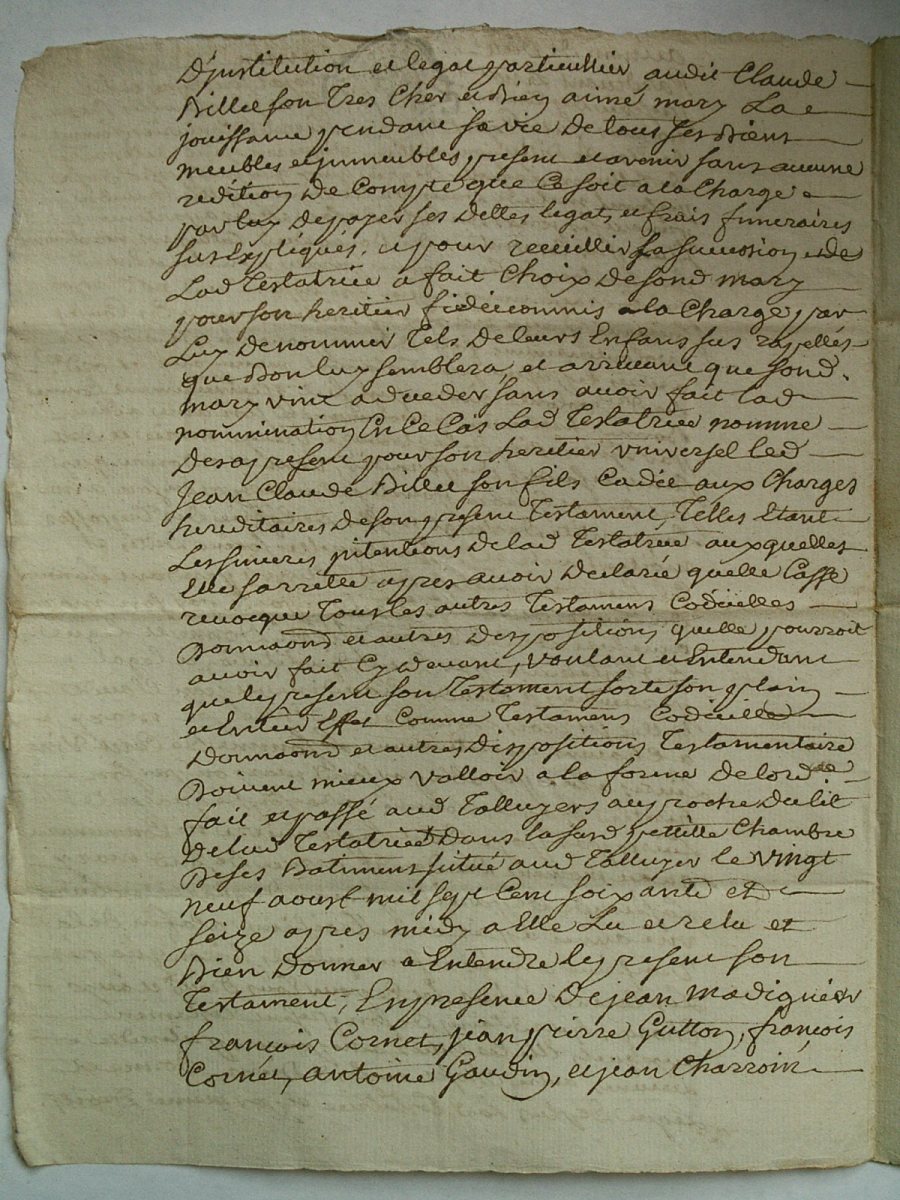 D'justitution et legat particullier, audit Claude
Billie son Tres Cher et Bien aimé mary La
jouissance pendant sa vie De tous ses Biens
meubles et jmmeubles, present et avenir sans aucune
redition De Compte que Ce soit a la Charge
par luy de payer ses Dettes legats et frais funeraires
sus Expliqués. et pour recüeillir sa succession de
Lad Testatrice a fait Choix De sond mary
pour son heritier fideicommis a la Charge par
Luy De nommer Tels De leurs Enfans sus rapellés
que Bon luy semblera, et arrivant que sond.
mary vint a deceder sans avoir fait lad
nommination En Ce Cas Lad Testatrice nomme
Des a present pour son heritier vniversel led
Jean Claude Billie son fils Cadée aux Charges
hereditaires De son present Testament, Telles Etant
Les sinceres jntentions De lad Testatrice auxquelles
Elle sarrette apres avoir Declaré quelle Casse
revocque Tous les autres Testament Codicilles
Donnaons et autres Dispositions quelle pourroit
avoir fait Cy devant, voulant et Entendant
que le present son Testament sorte son plain
et Entier Effet Comme Testament Codicille
Donnaons et autres Dispositions Testamentaire
Doivent mieux valloir a la forme De lord ce
fait et passé aud Talluyers au proche du lit
De lad Testatrice Dans la susd pettitte Chambre
De ses Batiment situé aud Talluyer le vingt
neuf aoust mil sept Cent soixante et
seize apres midy a Elle Lu et relu et
Bien Donner a Entendre le present son
Testament; En presence De jean madignier
françois Cornet, jean pierre Gutton, françois
Cornet, antoine Gaudin, et jean Charroin